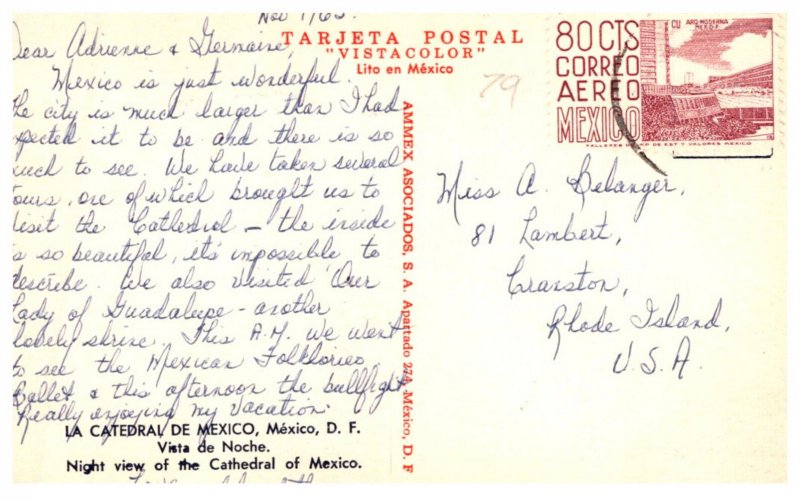 Nov 7/65.
Dear Adrienne & Germaine,
Mexico is just wonderful.
The city is much larger than I had
expected it to be and there is so
much to see. We have taken several
tours, one of which brought us to
visit the Cathedral - the inside
is so beautiful, it's impossible to
describe. We also visited Our
Lady of Guadalupe - another
lovely shrine. This A.M. we went
to see the Mexican Folklorico
Ballet & this afternoon the bullfight
Really enjoying my vacation.
LA CATEDRAL DE MEXICO, México, D. F.
Vista de Noche.
Night view of the Cathedral of Mexico.
TARJETA POSTAL
"VISTACOLOR"
Lito en México
79
AMMEX ASOCIADOS, S. A. Apartado 274, México, D. F
80 CTS
CORREO
AEREO
MEXICO
CU ARQ MODERNA
MEX D.F.
Miss A. Belanger,
81 Lambert,
Cranston,
Rhode Island,
U.S.A.